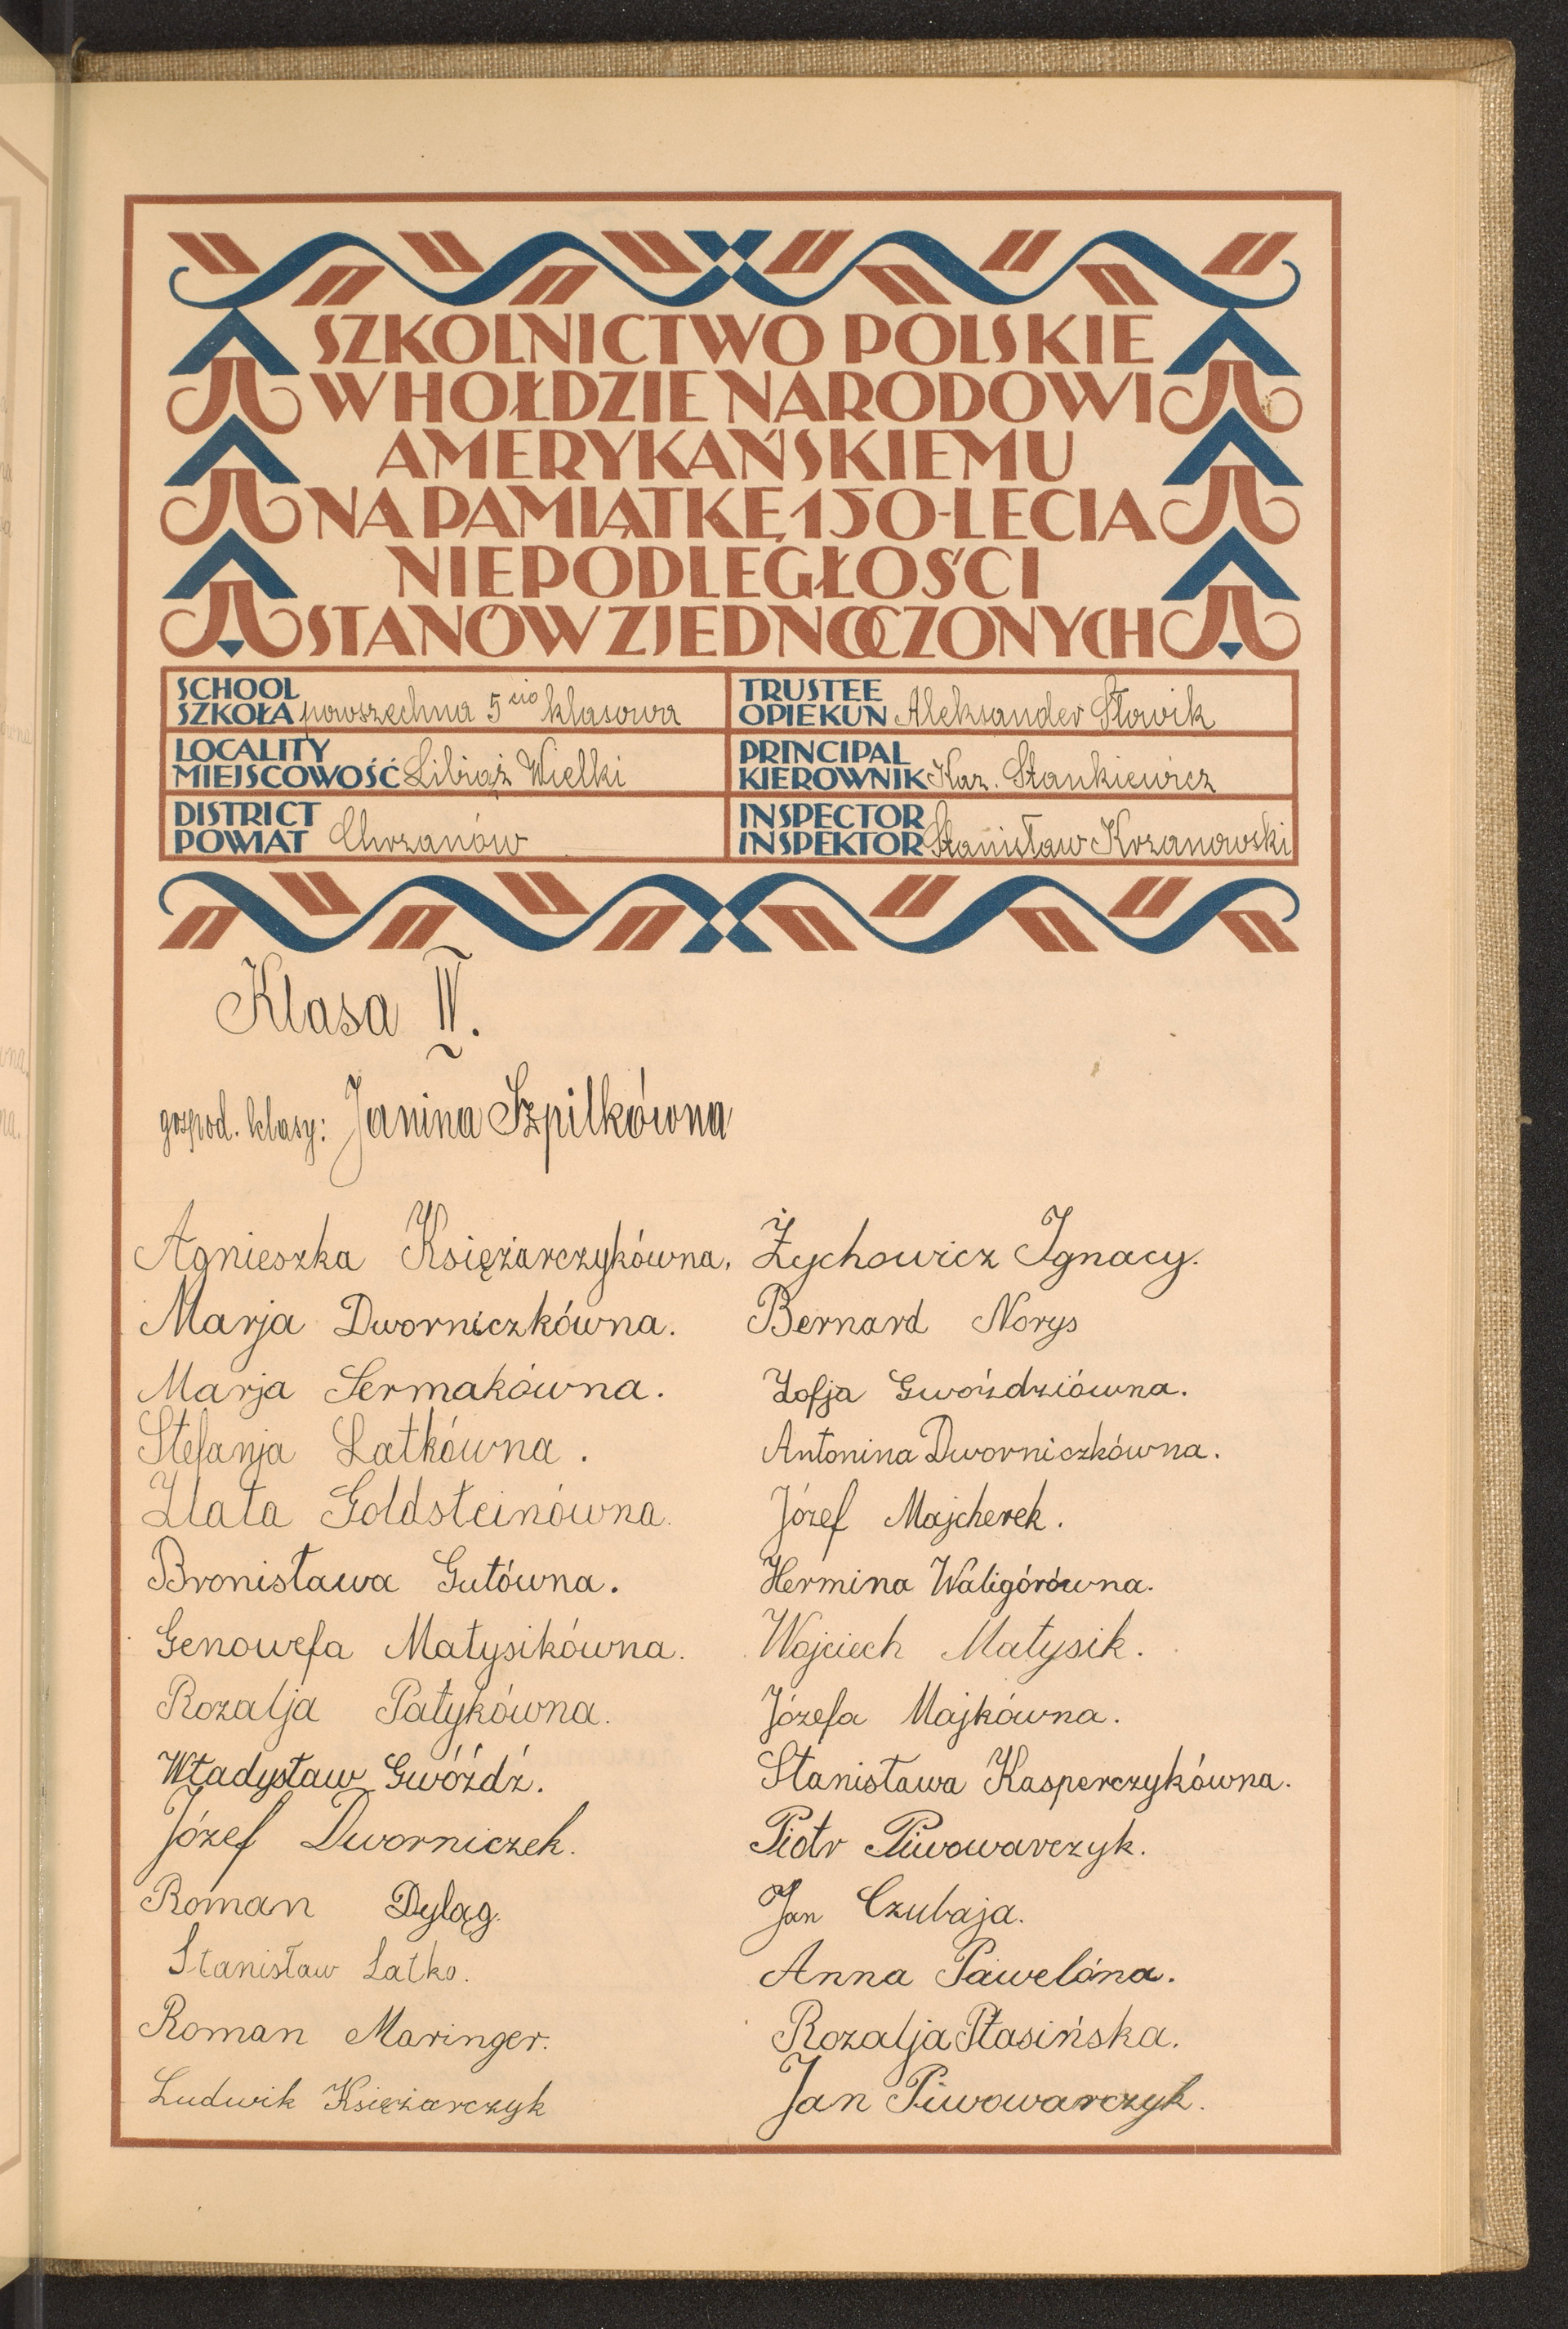 SZKOLNICTWO POLSKIE
W HOŁDZIE NARODOWI
AMERYKAŃSKIEMU
NA PAMIĄTKĘ 150-LECIA
NIEPODLEGŁOŚCI
STANÓW ZJEDNOCZONYCH
SCHOOL
SZKOŁA powszechna 5cio klasowa
LOCALITY
MIEJSCOWOŚĆ Libiąż Wielki
DISTRICT
POWIAT Chrzanów
TRUSTEE
OPIEKUN Aleksander Słowik
PRINCIPAL
KIEROWNIK Kaz. Stankiewicz
INSPECTOR
INSPEKTOR Stanisław Krzanowski
Klasa IV.
gospod. klasy: Janina Szpilkówna
Agnieszka Księżarczykówna.
Marja Dworniczkówna.
Marja Sermakówna.
Stefanja Latkówna.
Zlata Goldsteinówna.
Bronisława Gutówna.
Genowefa Matysikówna.
Rozalja Patykówna.
Władysław Gwóźdź.
Józef Dworniczek.
Roman Dyląg.
Stanisław Latko.
Roman Maringer.
Ludwik Księżarczyk
Żychowicz Ignacy.
Bernard Norys
Zofja Gwoździówna.
Antonina Dworniczkówna.
Józef Majcherek.
Hermina Waligórówna.
Wojciech Matysik.
Józefa Majkówna.
Stanisława Kasperczykówna.
Piotr Piwowarczyk.
Jan Czubaja.
Anna Pawelóna.
Rozalja Ptasińska.
Jan Piwowarczyk.